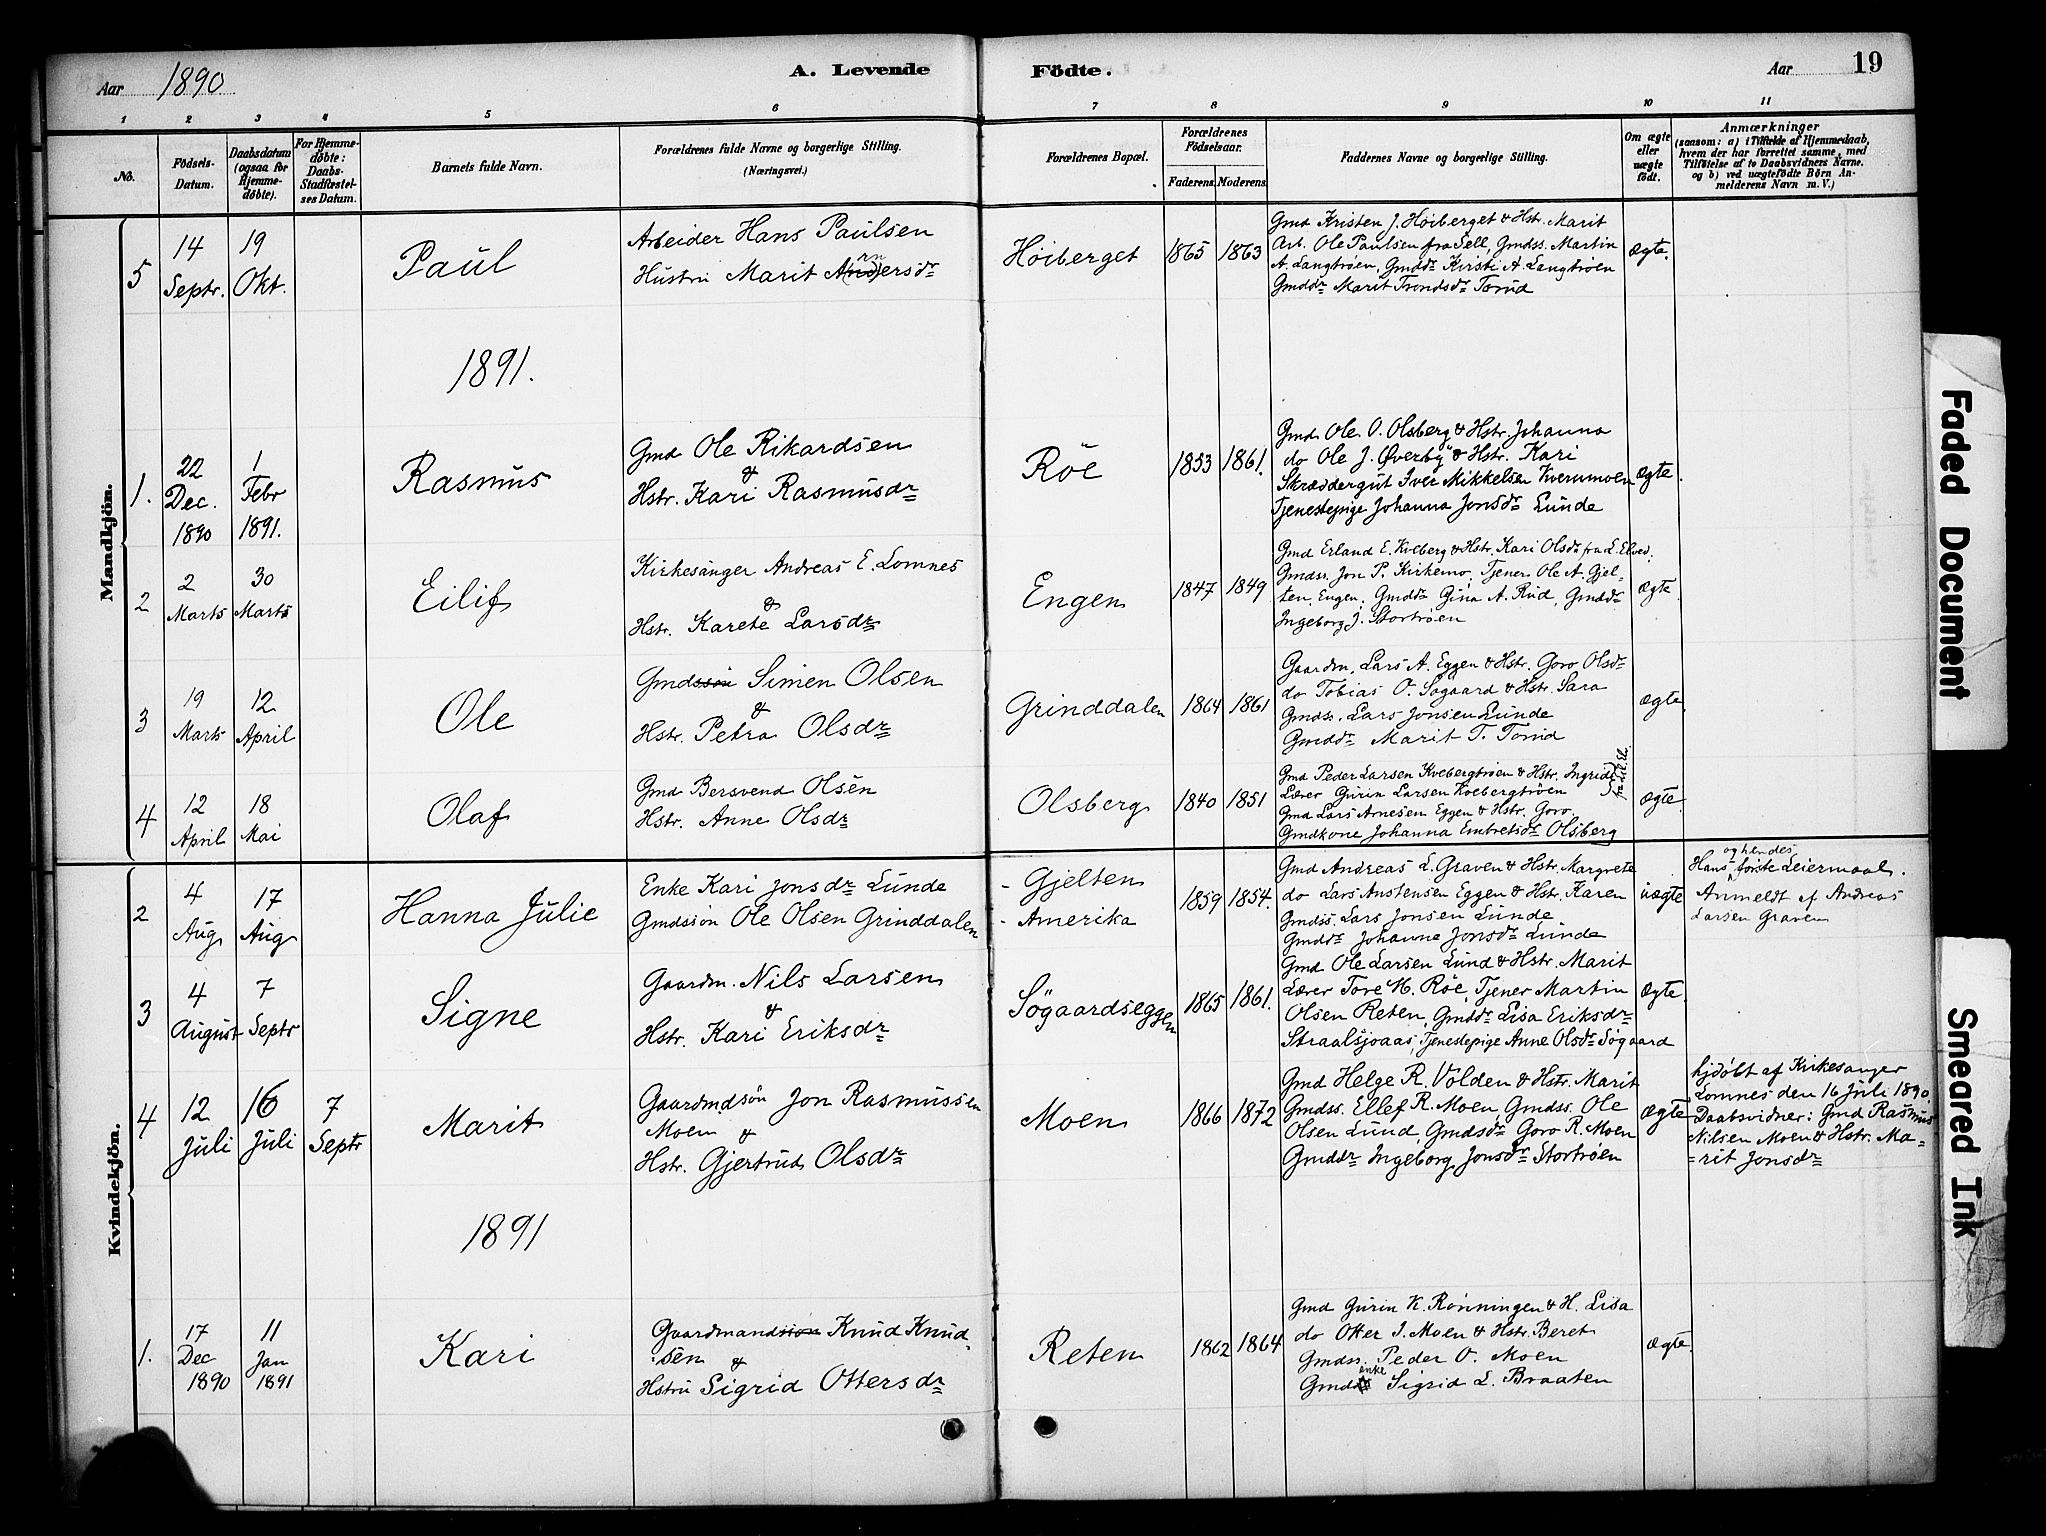 Aar 1890
A. Levende Födte.
Aar 19
1 2 3 4 5 6 7 8 9 10 11
No.
Födsels-
Datum.
Daabsdatum
(ogsaa for
Hjemme-
döbte).
For Hjemme-
döbte:
Daabs-
Stadfæstel-
ses Datum.
Barnets fulde Navn.
Forældrenes fulde Navne og borgerlige Stilling.
(Næringsvei.)
Forældrenes Bopæl.
Forældrenes
Födselsaar.
Faderens. Moderens.
Faddernes Navne og borgerlige Stilling.
Om ægte
eller
uægte
födt.
Anmærkninger
(saasom: a) i Tilfælde af Hjemmedaab,
hvem der har forrettet samme, med
Tilföielse af to Daabsvidners Navne,
og b) ved uægtefödte Börn An-
melderens Navn m. V.)
Mandkjön.
5
14
Septr.
19
Okt.
Paul
Arbeider Hans Paulsen
Hustru Marit Andersdr
Höiberget
1865 1863
Gmd Kristen J. Höiberget & Hstr. Marit
Arb. Ole Paulsen fra Sell, Gmdss. Martin
A. Langtröen, Gmddr Kirsti A. Langtröen
Gmddr Marit Trondsdr Torud
Ægte.
1891.
1.
22
Dec.
1890
1
Febr
1891.
Rasmus
Gmd Ole Rikardsen
&
Hstr. Kari Rasmusdr
Röe
1853 1861.
Gmd Ole O. Olsberg & Hstr. Johanna
do Ole J. Øverby & Hstr. Kari
Skræddergut Iver Mikkelsen Kvernmoen
Tjenestepige Johanna Jonsdr Lunde
Ægte.
2
2
Marts
30
Marts
Eilif
Kirkesanger Andreas E. Lomnes
&
Hstr. Karete Larsdr
Engen
1847 1849
Gmd Erland E. Kveberg & Hstr. Kari Olsdr fra L. Elved.
Gmdss. Jon P. Kirkemo, Tjener Ole A. Gjel-
ten, Engen, Gmddr Gina A. Rud, Gmddr
Ingeborg J. Stortröen
Ægte
3
19
Marts
12
April
Ole
Gmdssön Simen Olsen
&
Hstr. Petra Olsdr
Grinddalen
1864 1861
Gaardm. Lars A. Eggen & Hstr. Goro Olsdr
do Tobias O. Sögaard & Hstr. Sara
Gmdss. Lars Jonsen Lunde
Gmddr Marit T. Torud
Ægte
4
12
April
18
Mai
Olaf
Gmd Bersvend Olsen
Hstr. Anne Olsdr
Olsberg
1840 1851
Gmd Peder Larsen Kvebergtröen & Hstr. Ingrid
Lærer Gurin Larsen Kvebergtröen
Gmd Lars Arnesen Eggen & Hstr. Goro
Gmdkone Johanna Embretsdr Olsberg
Ægte
Kvindekjön.
2
4
Aug
17
Aug
Hanna Julie
Enke Kari Jonsdr Lunde
Gmdssön Ole Olsen Grinddalen
- Gjelten
- Amerika
1859 1854.
Gmd Andreas L. Graven & Hstr. Margrete
do Lars Anstensen Eggen & Hstr. Karen
Gmdss. Lars Jonsen Lunde
Gmddr Johanne Jonsdr Lunde
uægte
og hendes
Hans förste Leiermaal.
Anmeldt af Andreas
Larsen Graven
3
4
August
7
Septr
Signe
Gaardm. Nils Larsen
&
Hstr. Kari Eriksdr
Sögaardseggen
1865 1861.
Gmd Ole Larsen Lund & Hstr. Marit
Lærer Tore H. Röe, Tjener Martin
Olsen Reten, Gmddr Lisa Eriksdr
Straalsjoaas, Tjenestepige Anne Olsdr Sögaard
Ægte
4
12
Juli
16
Juli
7
Septr
Marit
Gaardmdsön Jon Rasmussen
Moen &
Hstr. Gjertrud Olsdr
Moen
1866 1872
Gmd Helge R. Volden & Hstr. Marit
Gmdss. Ellef R. Moen, Gmdss. Ole
Olsen Lund, Gmdsdr Goro R. Moen
Gmddr Ingeborg Jonsdr Stortröen
Ægte
hjdöbt af Kirkesanger
Lomnes den 16 Juli 1890.
Daabsvidner: Gmd Rasmus
Nilsen Moen & Hstr. Ma-
-rit Jonsdr
1891
1.
17
Dec
1890
11
Jan
1891
Kari
Gaardmandssön Knud Knud-
sen &
Hstru Sigrid Ottersdr
Reten
1862 1864
Gmd Gurin K. Rönningen & H. Lisa
do Otter J. Moen & Hstr. Beret
Gmdss. Peder O. Moen
enke
Gmd Sigrid L. Braaten
Ægte
Faded Document
Smeared Ink